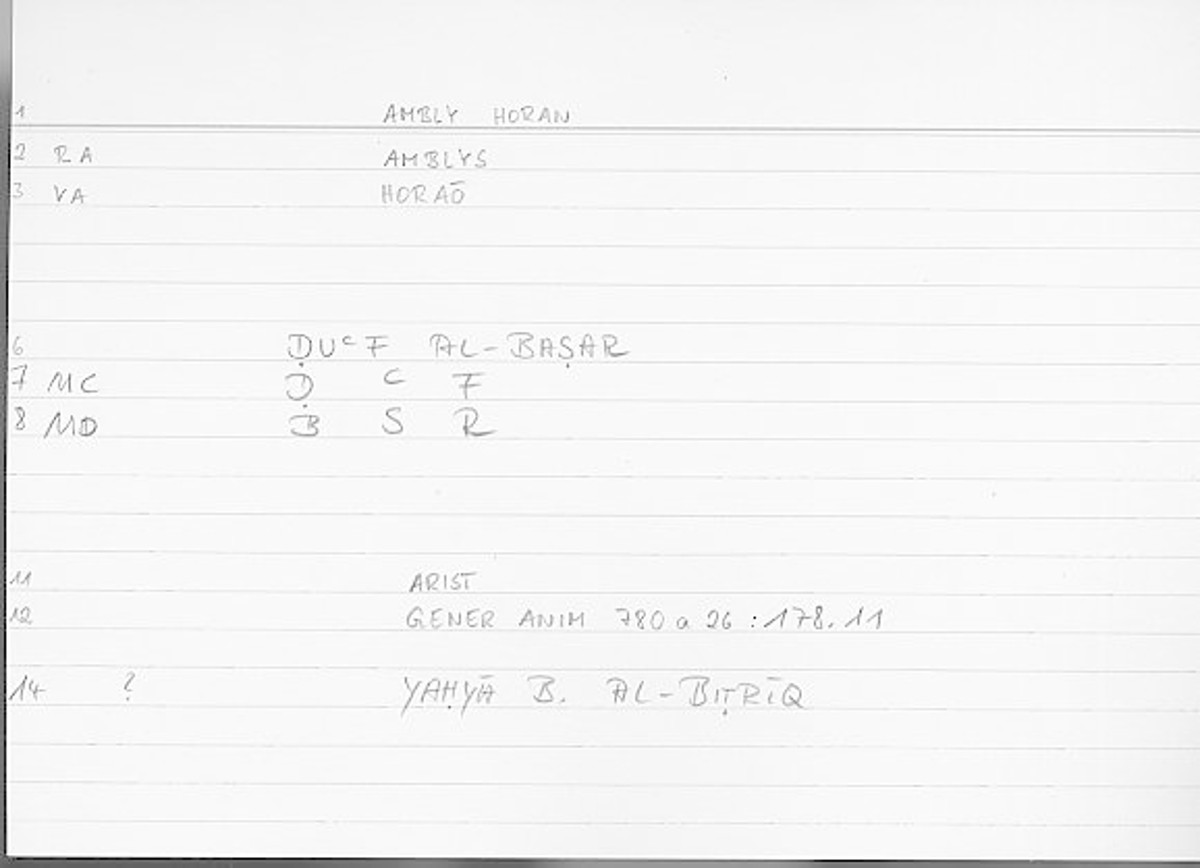 1 AMBLY HORAN
2 RA AMBLYS
3 VA HORAŌ
6 ḌUᶜF AL-BAṢAR
7 MC Ḍ ᶜ F
8 MD B S R
11 ARIST
12 GENER ANIM 780 a 26 : 178.11
14 ? YAḤYĀ B. AL-BIṬRĪQ